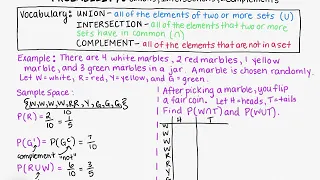 Vocabulary: UNION - all of the elements of two or more sets (∪)
INTERSECTION - all of the elements that two or more
sets have in common (∩)
COMPLEMENT - all of the elements that are not in a set
Example: There are 4 white marbles, 2 red marbles, 1 yellow
marble, and 3 green marbles in a jar. A marble is chosen randomly.
Let W=white, R=red, Y=yellow, and G=green.
Sample Space:
{W,W,W,W,R,R,Y,G,G,G}
P(R) = 2/10 = 1/5
P(G') = P(Gᶜ) = 7/10
complement "not"
P(R∪W) = 6/10 = 3/5
After picking a marble, you flip
a fair coin. Let H=heads, T=tails
Find P(W∩T) and P(W∪T).
H T
W
W
W
W
R
R
Y
G